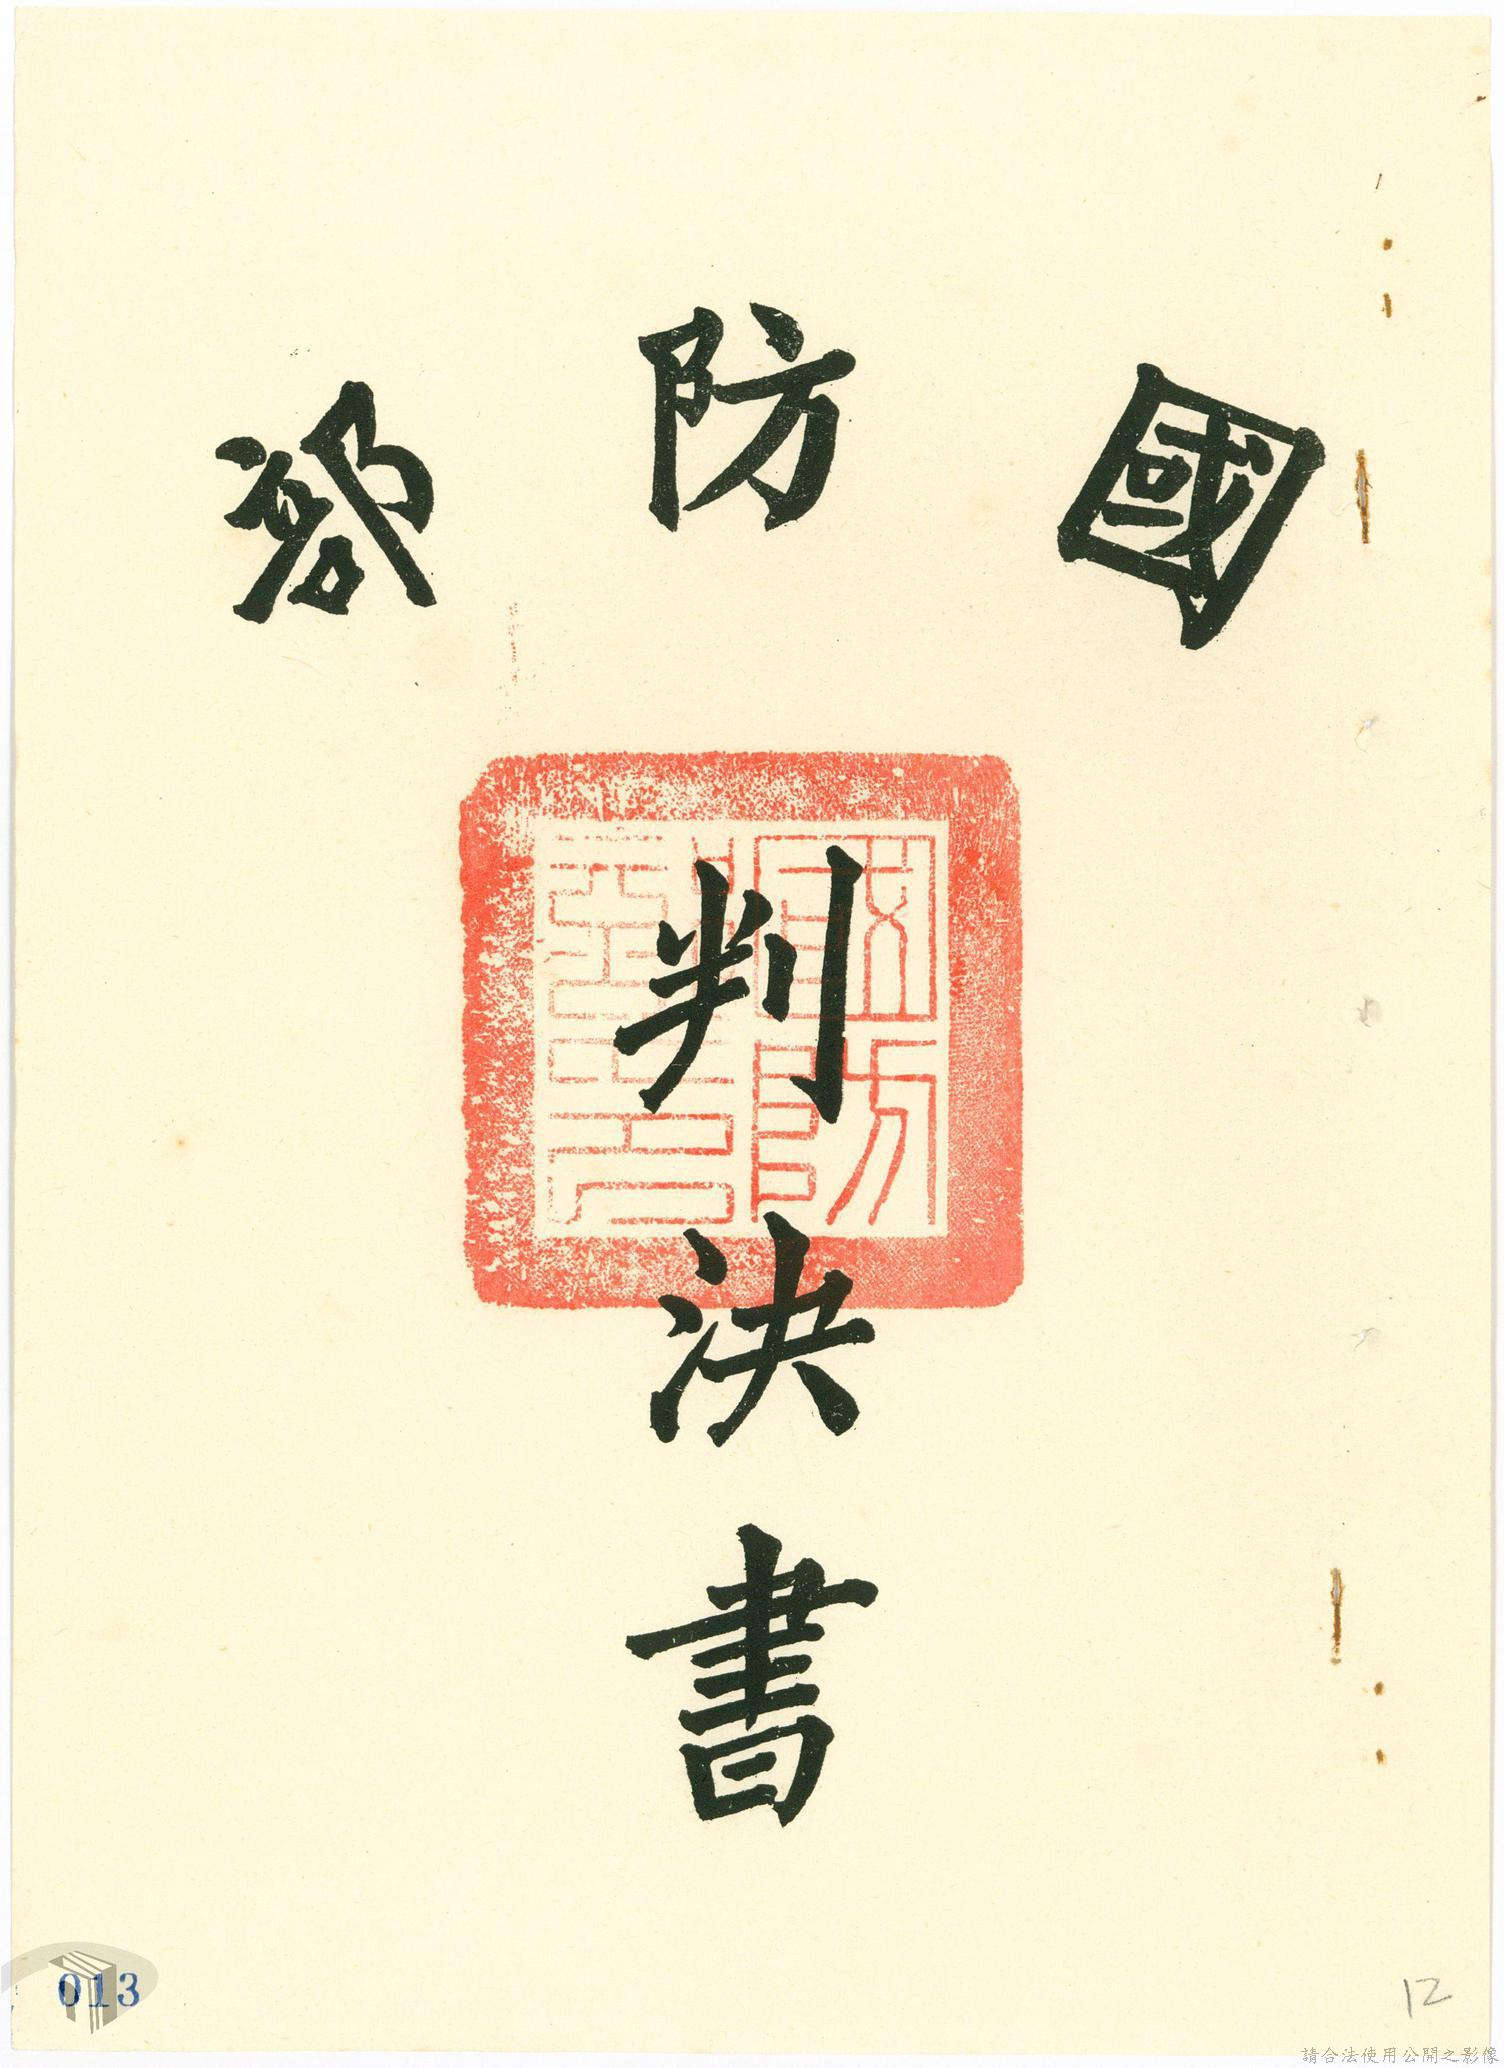 國防部
判決書
013
12
請合法使用公開之影像